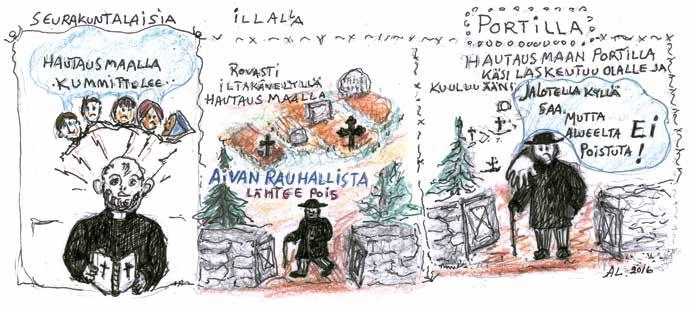 SEURAKUNTALAISIA
HAUTAUSMAALLA
KUMMITTELEE..
ILLALLA
ROVASTI
ILTAKÄVELYLLÄ
HAUTAUSMAALLA
AIVAN RAUHALLISTA
LÄHTEE POIS
PORTILLA
HAUTAUSMAAN PORTILLA
KÄSI LASKEUTUU OLALLE JA
KUULUU ÄÄNI
JALOTELLA KYLLÄ
SAA,
MUTTA
ALUEELTA
POISTUTA
EI!
AL. 2016